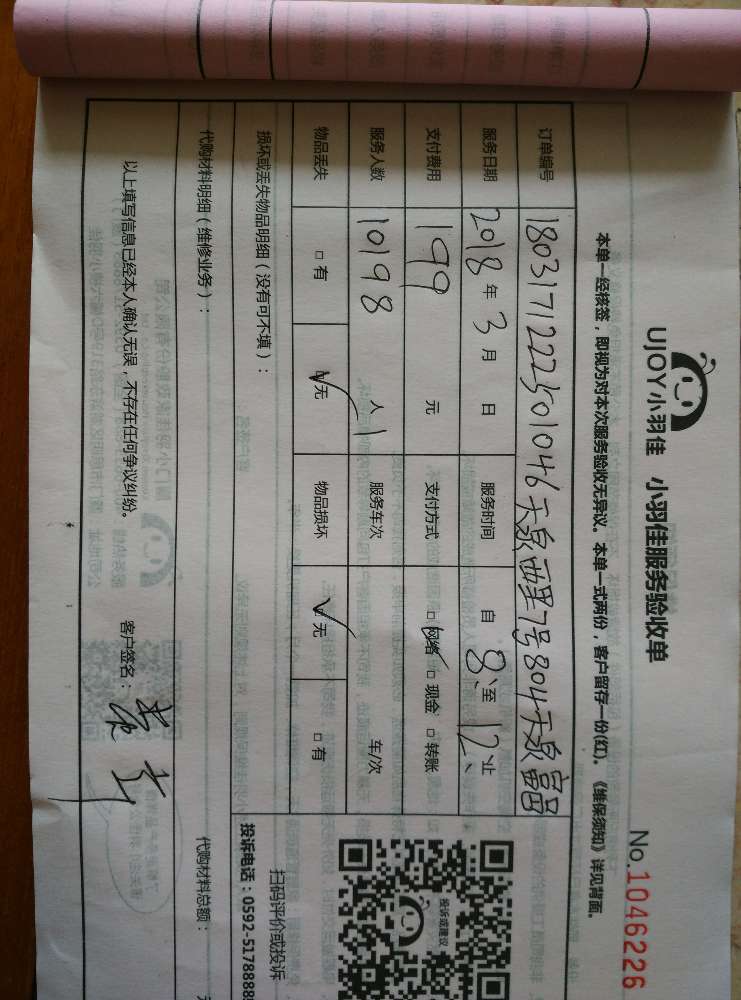 UJOY小羽佳 小羽佳服务验收单
No.1046226
本单一经核签，即视为对本次服务验收无异议。本单一式两份，客户留存一份(红)。《维保须知》详见背面。
订单编号 180317122501046天泉西里7号804天泉富邑
服务日期 2018年3月 日 服务时间 自8:至12:止
支付费用 199 元 支付方式 □网络 □现金 □转账
服务人数 10198 人1 服务车次 车/次
物品丢失 □有 ☑无 物品损坏 ☑无 □有
损坏或丢失物品明细（没有可不填）：
代购材料明细（维修业务）：
代购材料总额：
投诉或建议
扫码评价或投诉
投诉电话：0592-5178888
以上填写信息已经本人确认无误，不存在任何争议纠纷。 客户签名：